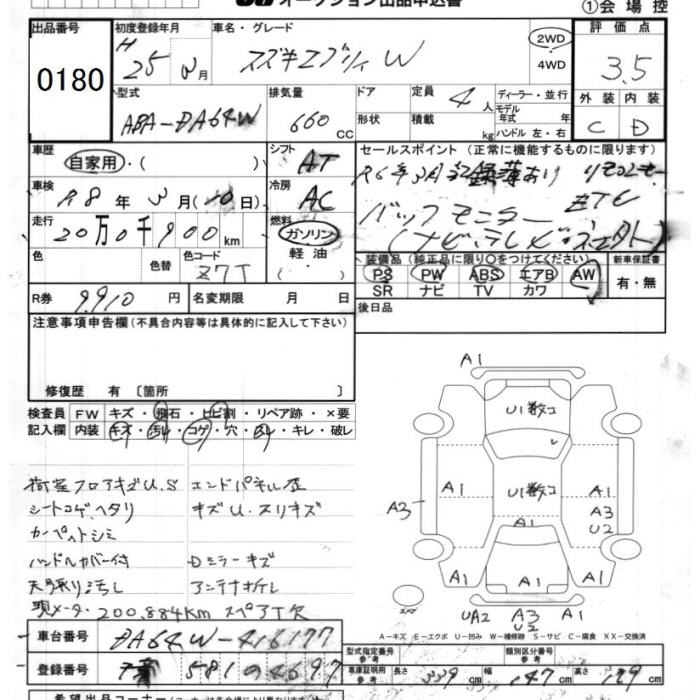 オークション出品申込書
①会場控
出品番号 初度登録年月 車名・グレード 評価点
0180 H 25 年 月 スズキエブリィ W 2WD ・ 4WD 3.5
型式 排気量 ドア 定員 ディーラー・並行 外装 内装
ABA-DA64W 660 CC 形状 積載 4人 kg モデル年式 年 ハンドル 左・右 C D
車歴 シフト セールスポイント (正常に機能するものに限ります)
自家用・( ) AT R6年3月記録簿あり
車検 冷房
R8年3月(10日) AC バックモニター ETC
走行 燃料
20万0千900km ガソリン (ナビ、テレビ
色 色替 色コード 軽油 装備品 (純正品に限り○をつけてください) 新車保証書
Z7T ・( ) PS PW ABS エアB AW 有・無
SR ナビ TV カワ
R券 9910円 名変期限 月 日 後日品
注意事項申告欄(不具合内容等は具体的に記入して下さい)
修復歴 有 〔箇所 〕
検査員 FW キズ・飛石・ヒビ割・リペア跡・×要
記入欄 内装 キズ・汚れ・コゲ・穴・ キレ・破レ
荷室フロアキズU.S エンドパネル歪
シートコゲ、ヘタリ キズU.スリキズ
カーペットシミ
ハンドルカバー付 Dミラーキズ
天張り汚し アンテナオレ
現メーター 200,884Km スペアT欠
A1
U1数コ
A1 U1数コ A1
A3 A1 A3
U2
A1 A1
スペア UA2 A3
U2
A-キズ E-エクボ U-凹み W-補修跡 S-サビ C-腐食 XX-交換済
車台番号 DA64W-416177
登録番号 581 の 4697
型式指定番号 参考 類別区分番号 参考
車庫証明用 参考 長さ 339 幅 147 高さ 179